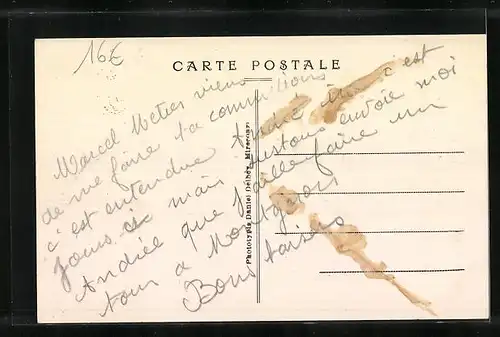 16€
CARTE POSTALE
Marcel vient
de me faire ta commission
c'est entendue André c'est
jours mais surtout envoie moi
Andrée que j'aille faire un
tour a Montgiron
Bons baisers
Phototypie Daniel Delboy, Mirecourt